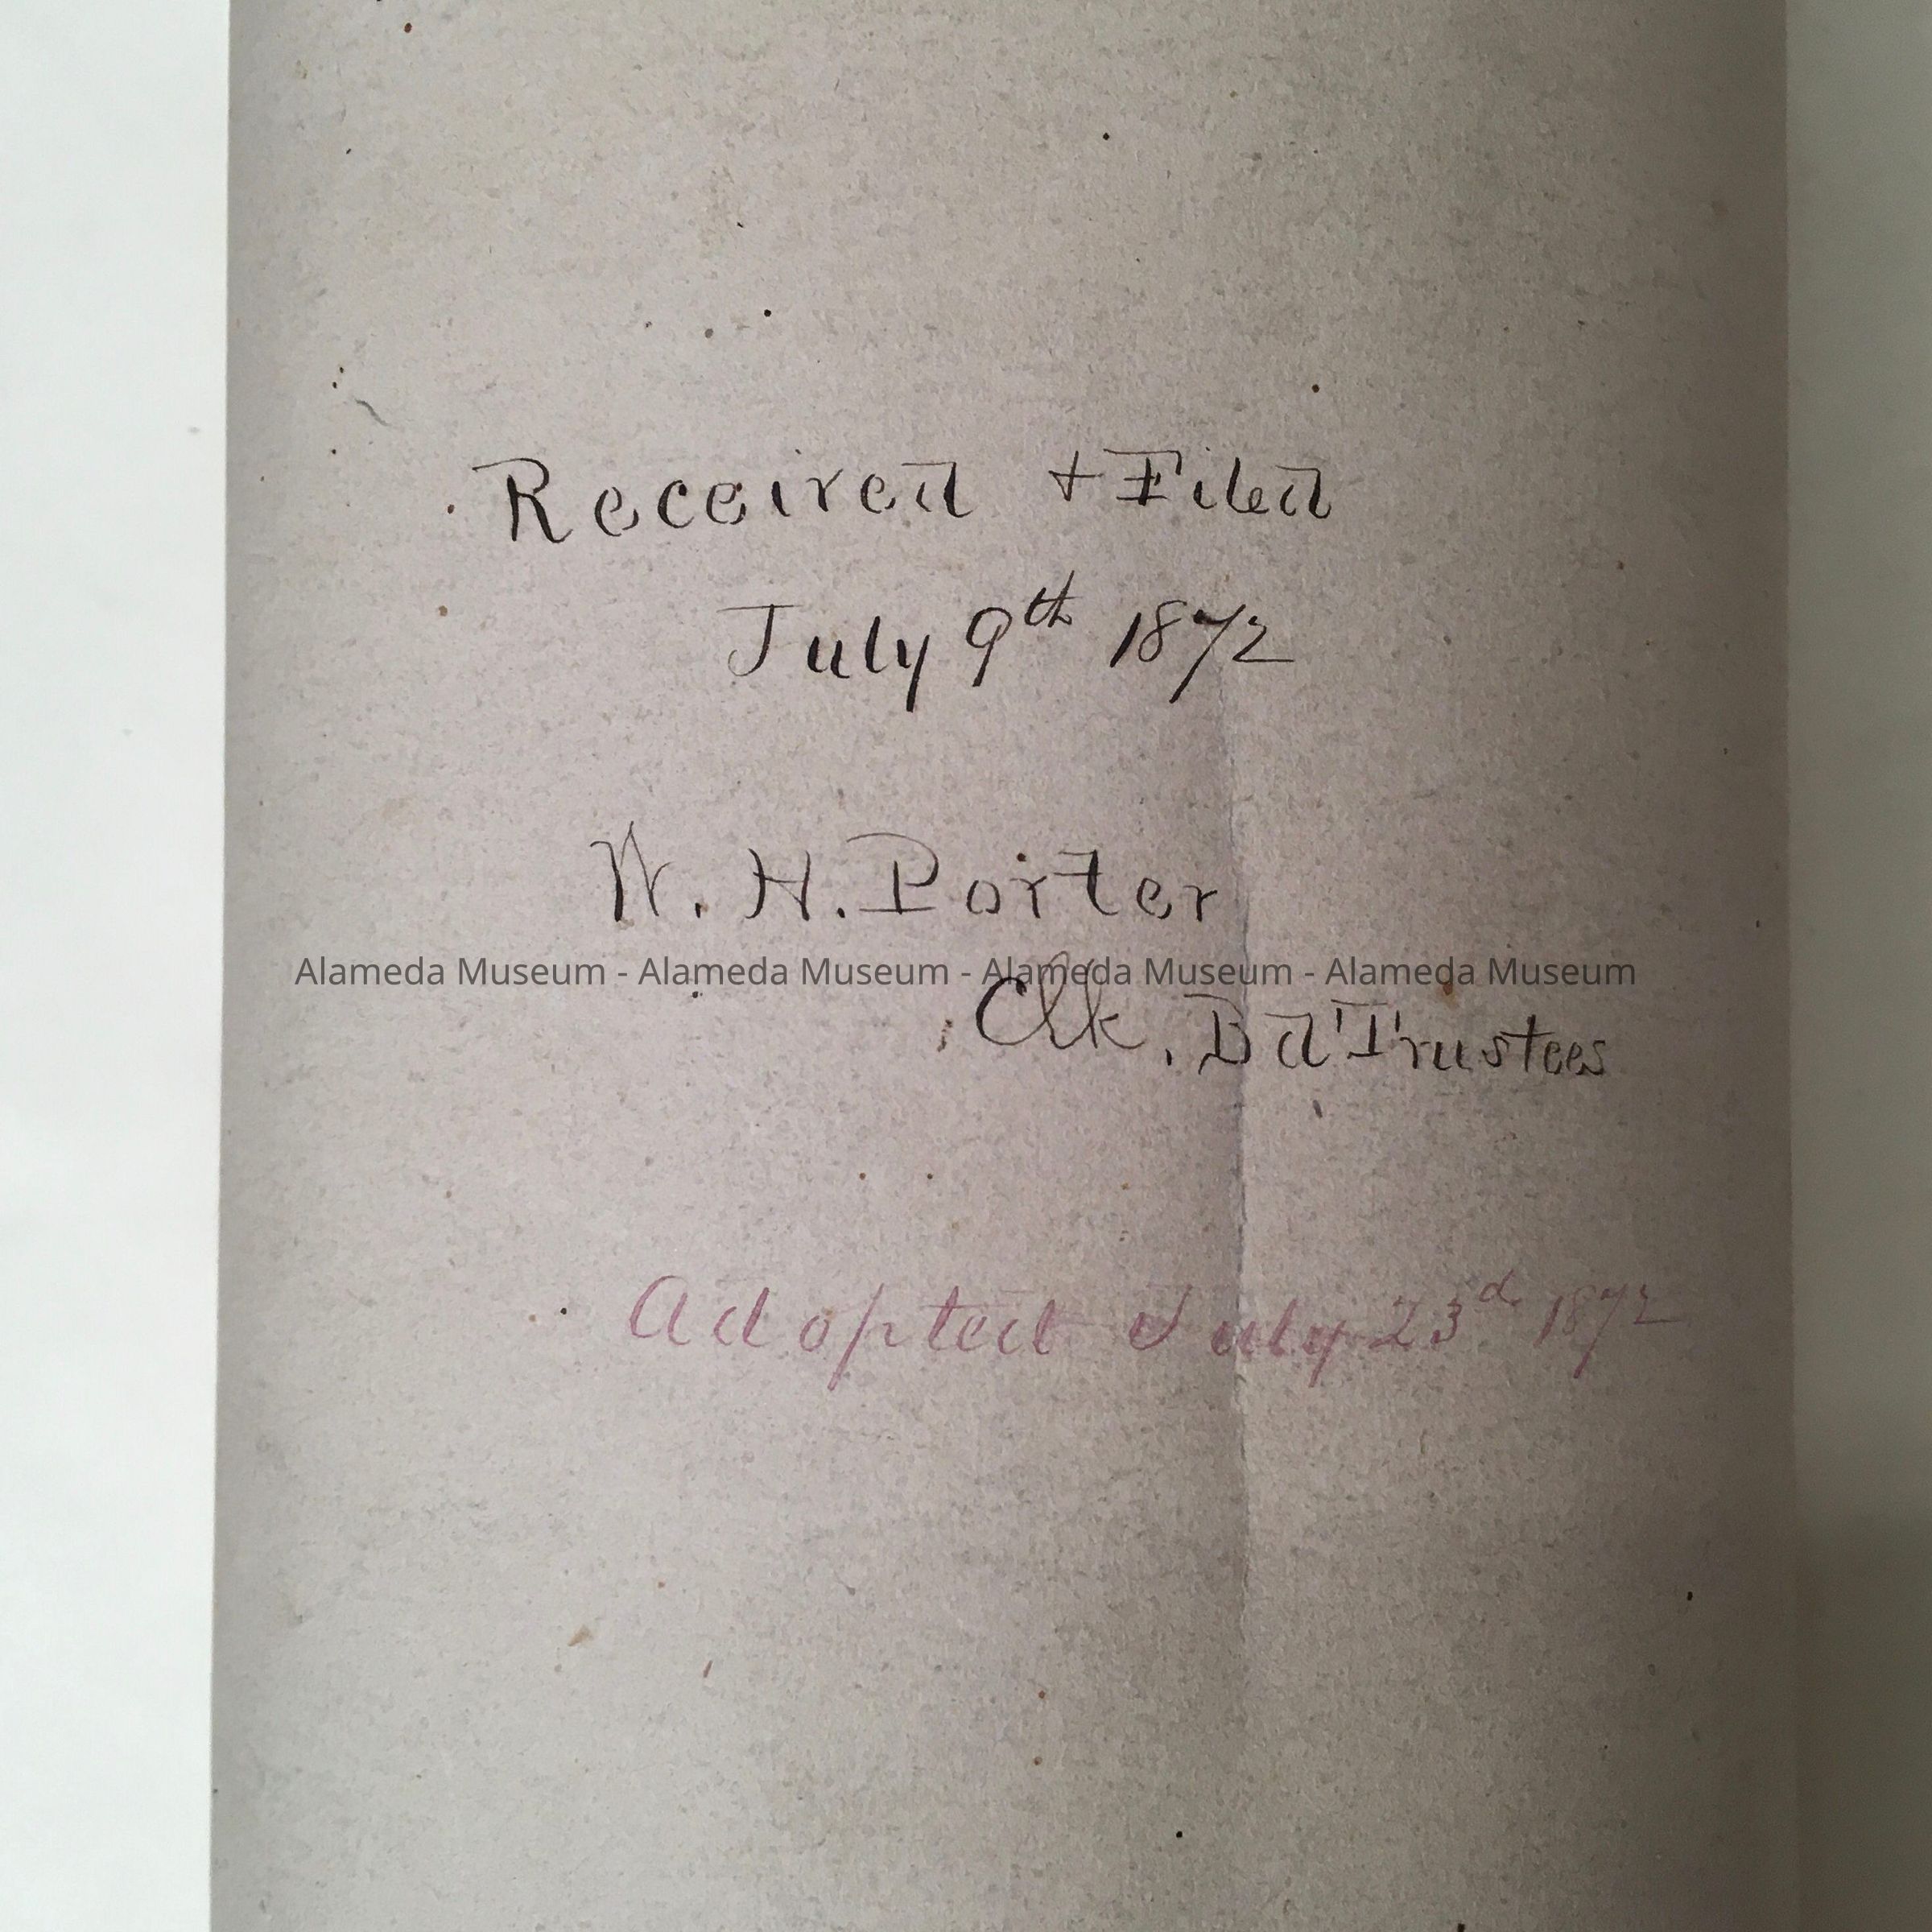 Received + Filed
July 9th 1872
W. H. Porter
Alameda Museum - Alameda Museum - Alameda Museum - Alameda Museum
Clk. Bd Trustees
Adopted July 23d. 1872